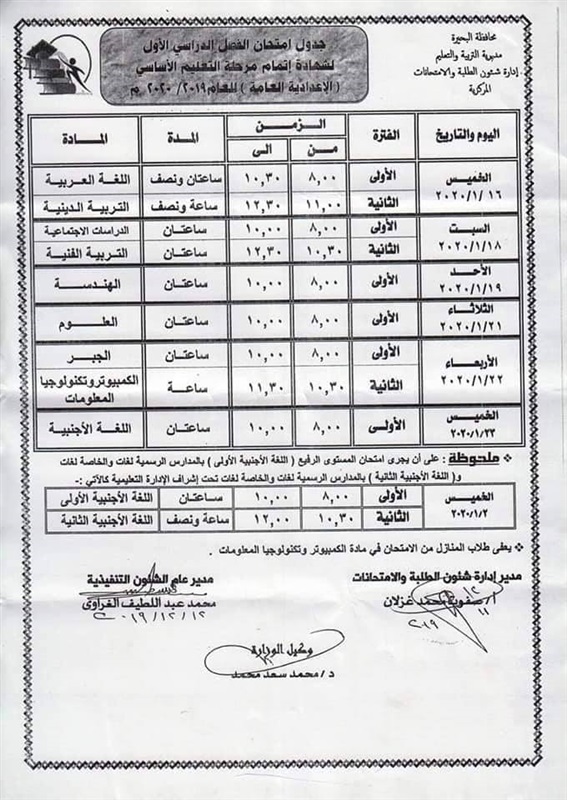 محافظة البحيرة
مديرية التربية والتعليم
إدارة شئون الطلبة والامتحانات
المركزية
جدول امتحان الفصل الدراسي الأول
لشهادة إتمام مرحلة التعليم الأساسي
( الإعدادية العامة ) للعام ٢٠١٩/ ٢٠٢٠ م
اليوم والتاريخ الفترة الزمن المدة المادة
من الى
الخميس ٢٠٢٠/١/١٦ الأولى ٨,٠٠ ١٠,٣٠ ساعتان ونصف اللغة العربية
الثانية ١١,٠٠ ١٢,٣٠ ساعة ونصف التربية الدينية
السبت ٢٠٢٠/١/١٨ الأولى ٨,٠٠ ١٠,٠٠ ساعتان الدراسات الاجتماعية
الثانية ١٠,٣٠ ١٢,٣٠ ساعتان التربية الفنية
الأحد ٢٠٢٠/١/١٩ الأولى ٨,٠٠ ١٠,٠٠ ساعتان الهندسة
الثلاثاء ٢٠٢٠/١/٢١ الأولى ٨,٠٠ ١٠,٠٠ ساعتان العلوم
الأربعاء ٢٠٢٠/١/٢٢ الأولى ٨,٠٠ ١٠,٠٠ ساعتان الجبر
الثانية ١٠,٣٠ ١١,٣٠ ساعة الكمبيوتر وتكنولوجيا المعلومات
الخميس ٢٠٢٠/١/٢٣ الأولى ٨,٠٠ ١٠,٠٠ ساعتان اللغة الأجنبية
❖ ملحوظة : على أن يجرى امتحان المستوى الرفيع ( اللغة الأجنبية الأولى ) بالمدارس الرسمية لغات والخاصة لغات
و( اللغة الأجنبية الثانية ) بالمدارس الرسمية لغات والخاصة لغات تحت إشراف الإدارة التعليمية كالآتي :-
الخميس ٢٠٢٠/١/٢ الأولى ٨,٠٠ ١٠,٠٠ ساعتان اللغة الأجنبية الأولى
الثانية ١٠,٣٠ ١٢,٠٠ ساعة ونصف اللغة الأجنبية الثانية
❖ يعفى طلاب المنازل من الامتحان في مادة الكمبيوتر وتكنولوجيا المعلومات .
مدير إدارة شئون الطلبة والامتحانات
أ/ صفوت محمد غزلان
مدير عام الشئون التنفيذية
محمد عبد اللطيف الغراوى
٢٠١٩/١٢/١٢
وكيل الوزارة
د/ محمد سعد محمد